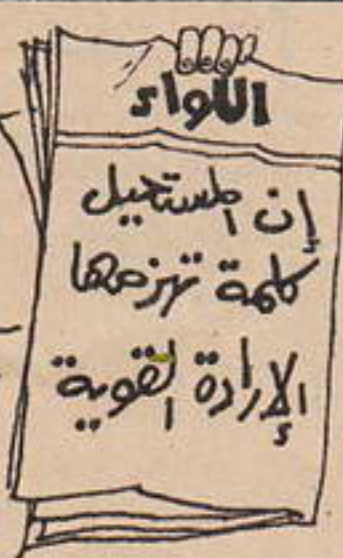 اللواء
إن المستحيل
كلمة تهزمها
الإرادة القوية